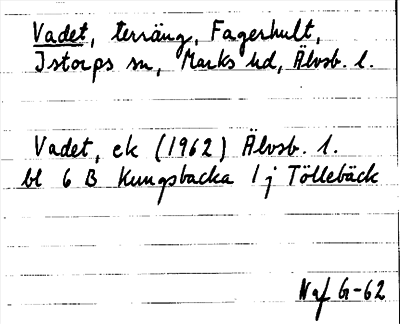 Vadet, terräng, Fagerhult,
Istorps sn, Marks hd, Älvsb. l.
Vadet, ek (1962) Älvsb. l.
bl 6 B Kungsbacka 1 j Töllebäck
Naf G-62